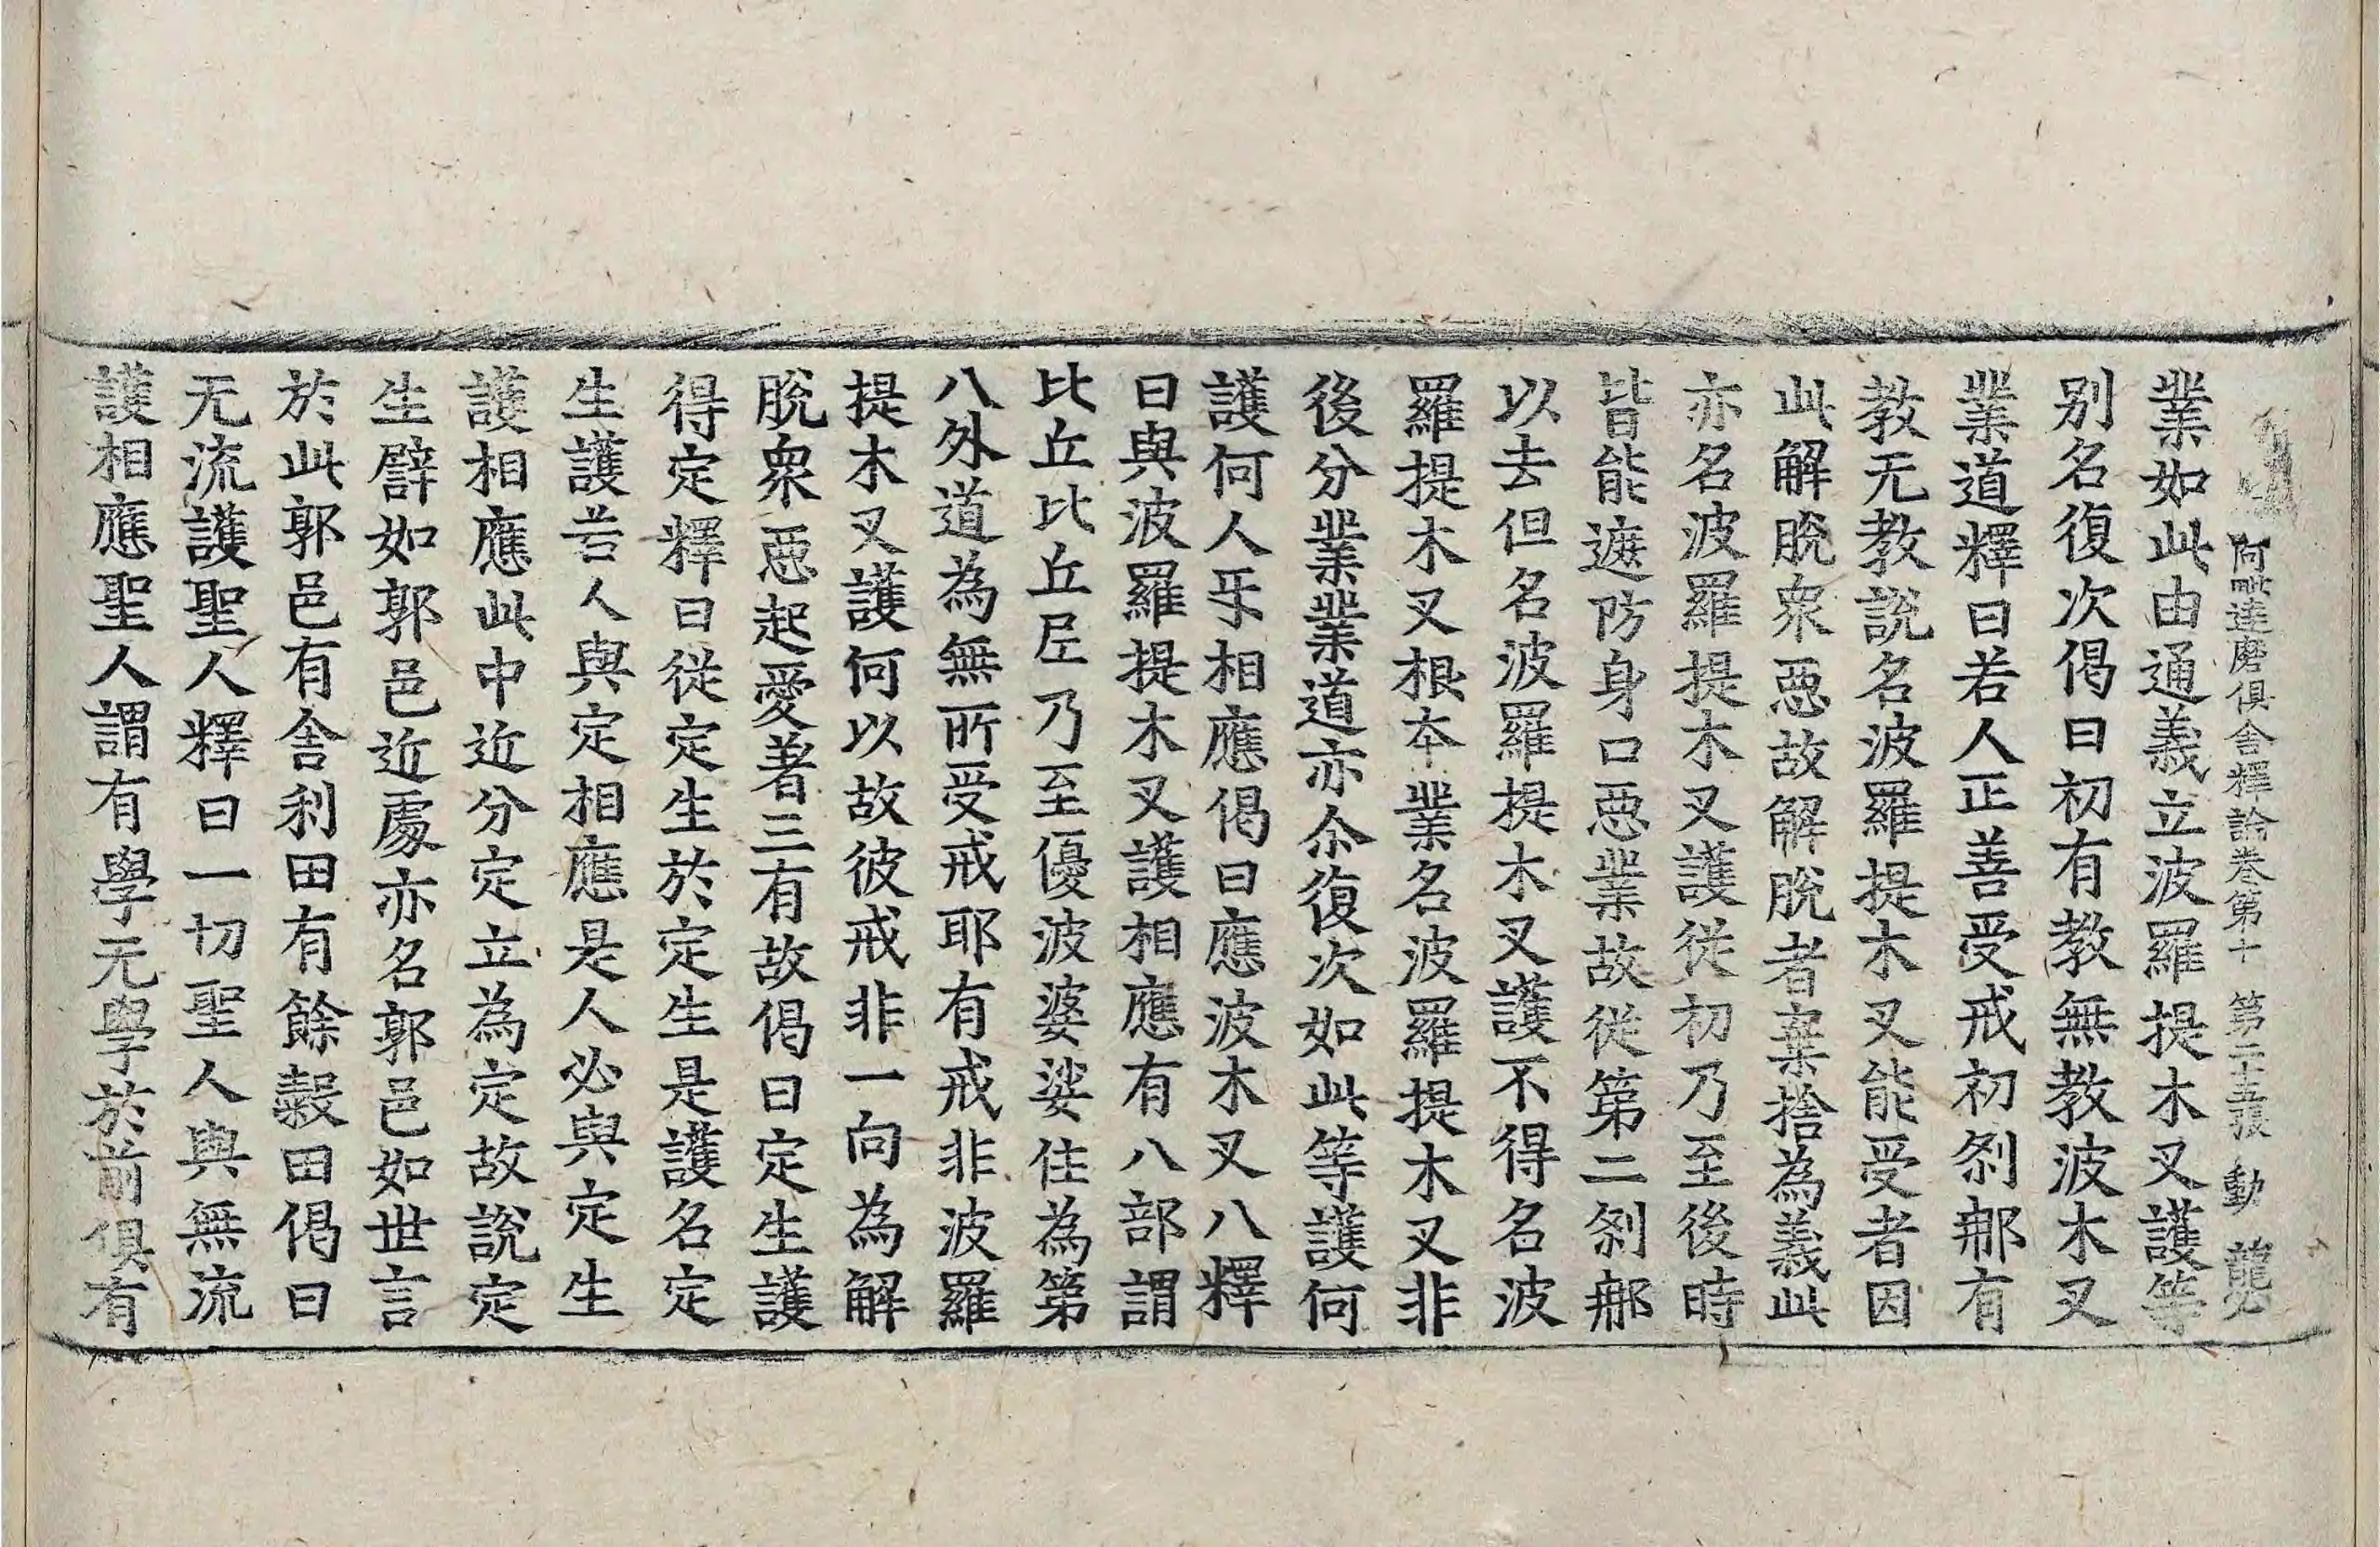 阿毗達磨俱舍釋論卷第十 第二十五張 動
業如此由通義立波羅提木叉護等
别名復次偈曰初有教無教波木叉
業道釋曰若人正善受戒初剎那有
教无教說名波羅提木叉能受者因
此解脫衆惡故解脫者棄捨為義此
亦名波羅提木叉護從初乃至後時
皆能遮防身口惡業故從第二剎那
以去但名波羅提木叉護不得名波
羅提木叉根本業名波羅提木叉非
後分業業道亦尒復次如此等護何
護何人㸦相應偈曰應波木叉八釋
曰與波羅提木叉護相應有八部謂
比丘比丘尼乃至優波婆娑住為第
八外道為無所受戒耶有戒非波羅
提木叉護何以故彼戒非一向為解
脫衆惡起愛著三有故偈曰定生護
得定釋曰從定生於定生是護名定
生護若人與定相應是人必與定生
護相應此中近分定立為定故說定
生譬如郭邑近處亦名郭邑如世言
於此郭邑有舍利田有餘穀田偈曰
无流護聖人釋曰一切聖人與無流
護相應聖人謂有學无學於前俱有